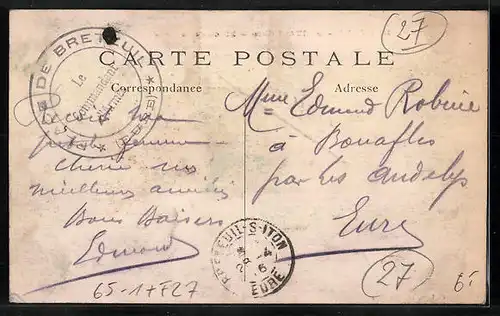 27
CARTE POSTALE
Correspondance
Adresse
DE BRETEUIL
Le
Commandant
d'Armes
(EURE)
Reçois ma
petite femme
cherie mes
meilleurs amitiés
Bons Baisers
Edmond
65-1+F27
Mme Edmond Robine
à Bouafles
par les andelys
Eure
BRETEUIL-S-ITON
EURE
27
6f